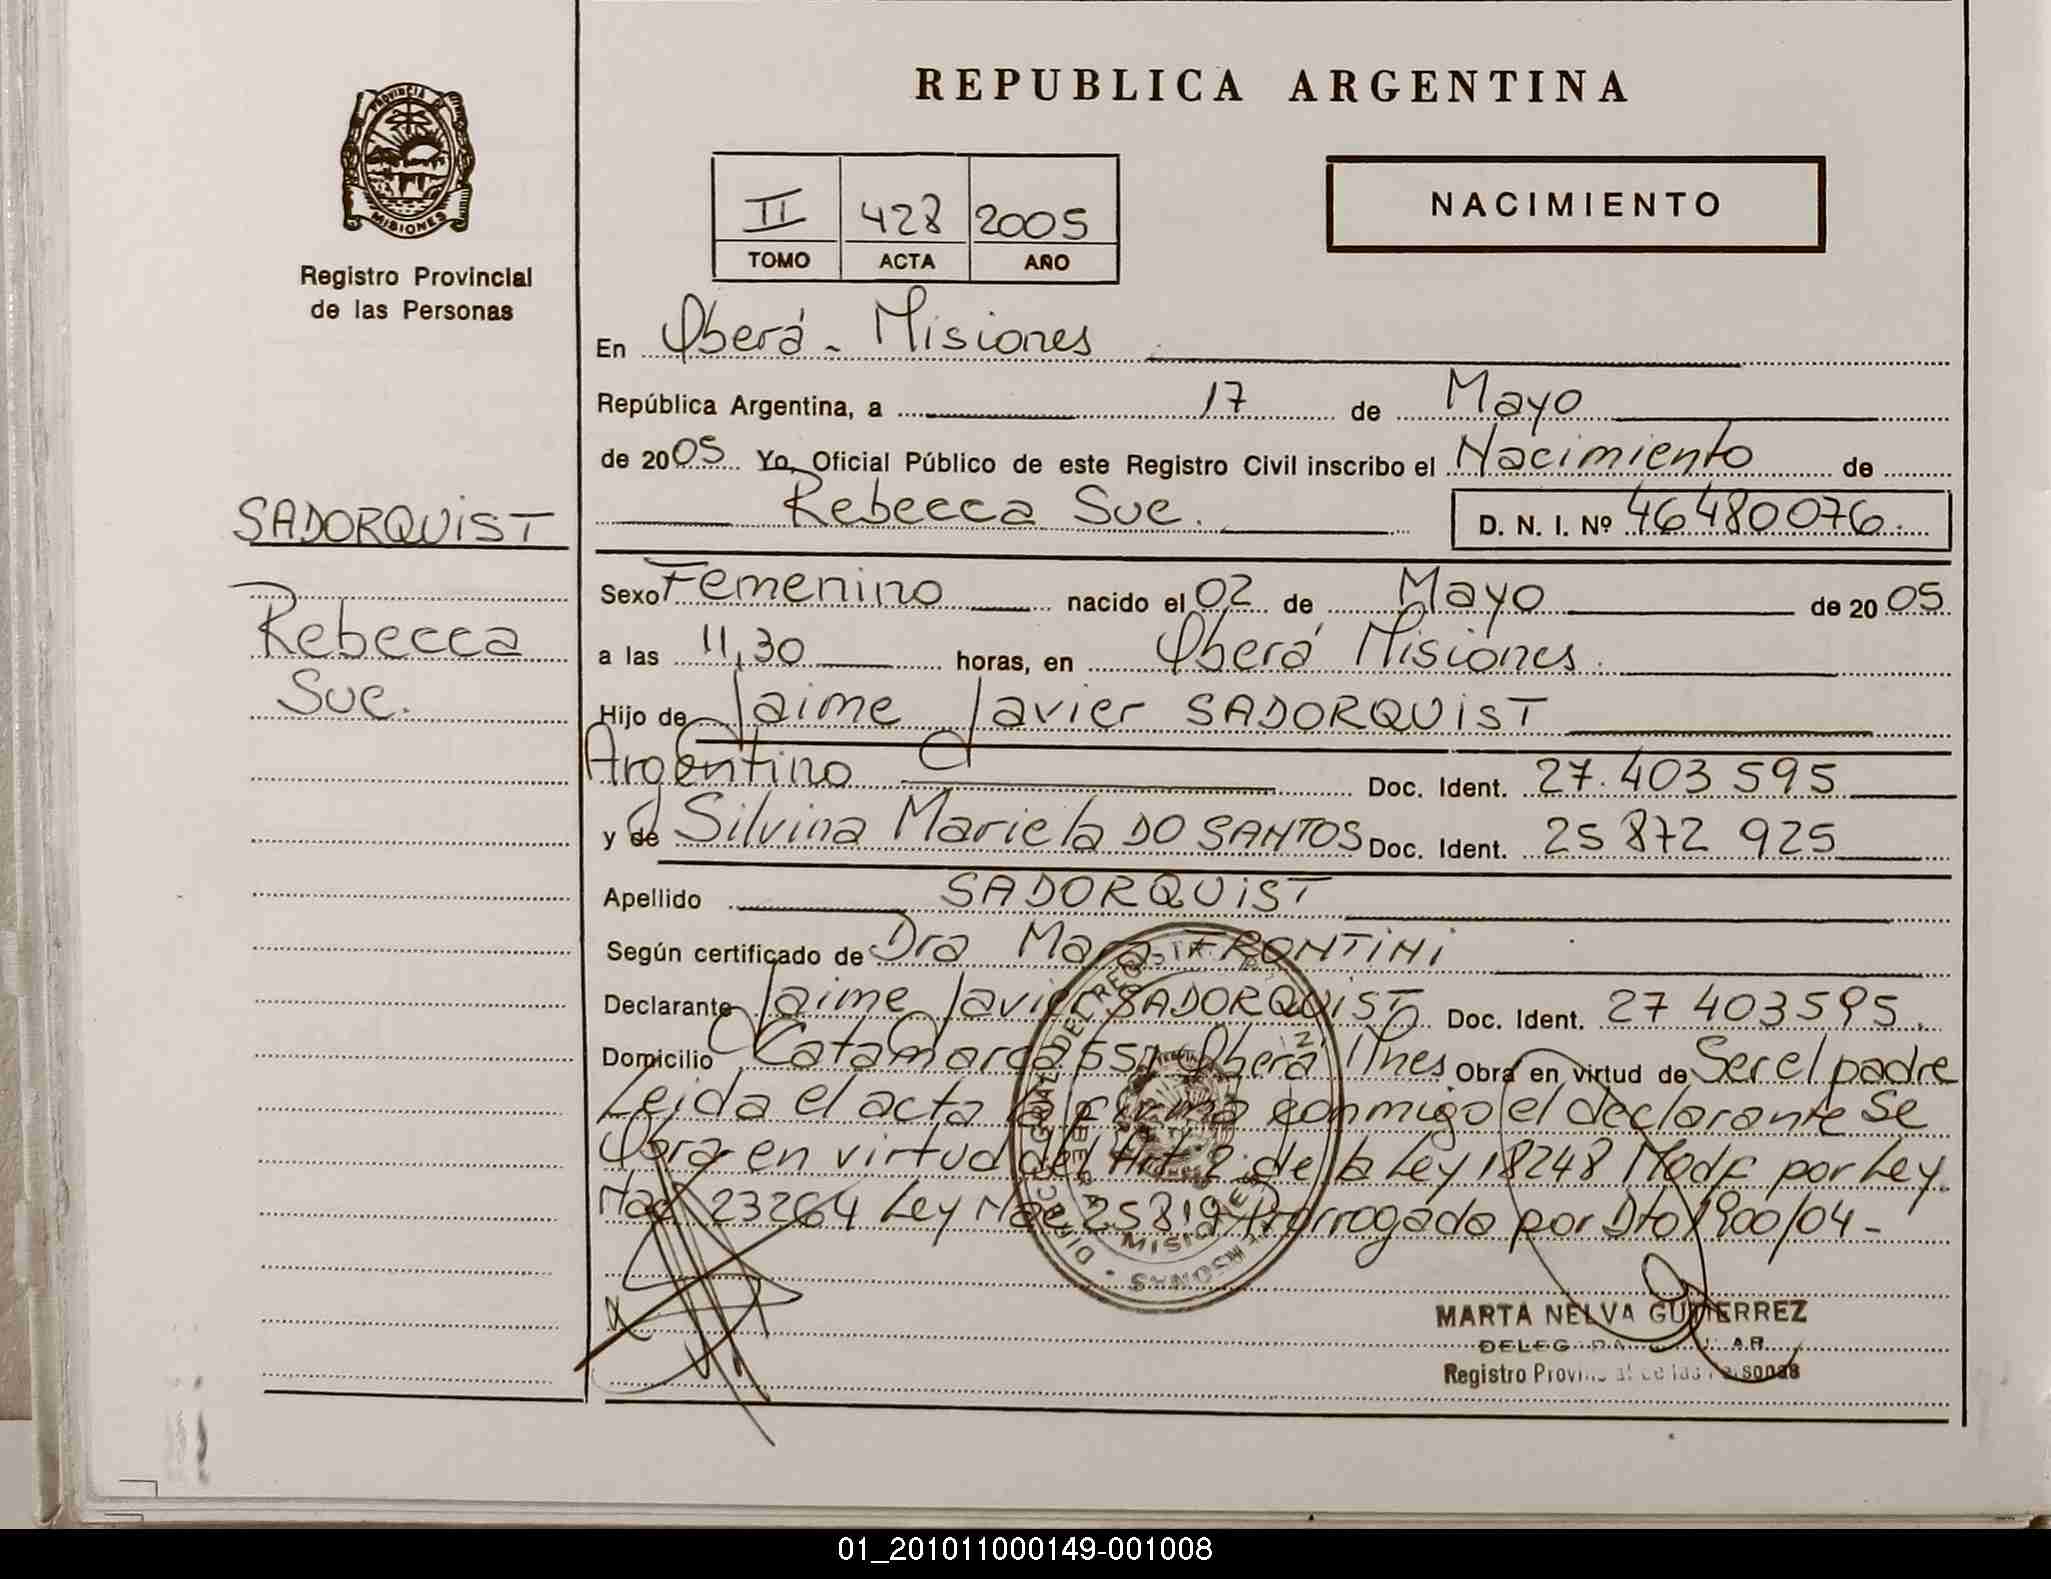 REPUBLICA ARGENTINA
PROVINCIA DE
MISIONES
Registro Provincial
de las Personas
II 428 2005
TOMO ACTA AÑO
NACIMIENTO
En Oberá - Misiones
República Argentina, a 17 de Mayo
de 2005 Yo, Oficial Público de este Registro Civil inscribo el Nacimiento de
Rebecca Sue. D. N. I. Nº 46480076.
SADORQUIST
Rebecca
Sue.
Sexo Femenino nacido el 02 de Mayo de 2005
a las 11,30 horas, en Oberá Misiones.
Hijo de Jaime Javier SADORQUIST
Argentino Doc. Ident. 27.403 595
y de Silvina Mariela DO SANTOS Doc. Ident. 25 872 925
Apellido SADORQUIST
Según certificado de Dra FRONTINI
Declarante Jaime Javier SADORQUIST Doc. Ident. 27 403595.
Domicilio Catamarca Oberá Mnes Obra en virtud de Ser el padre
Leida el acta la firma conmigo el declarante Se
Obra en virtud del Art 2 de la Ley 18248 Modf por Ley
Nac 23264 Ley Nac 25819 Prorrogado por Dto 1900/04 -
MISIONES
MARTA NELVA GUTIERREZ
Registro Provincial de las Personas
01_201011000149-001008